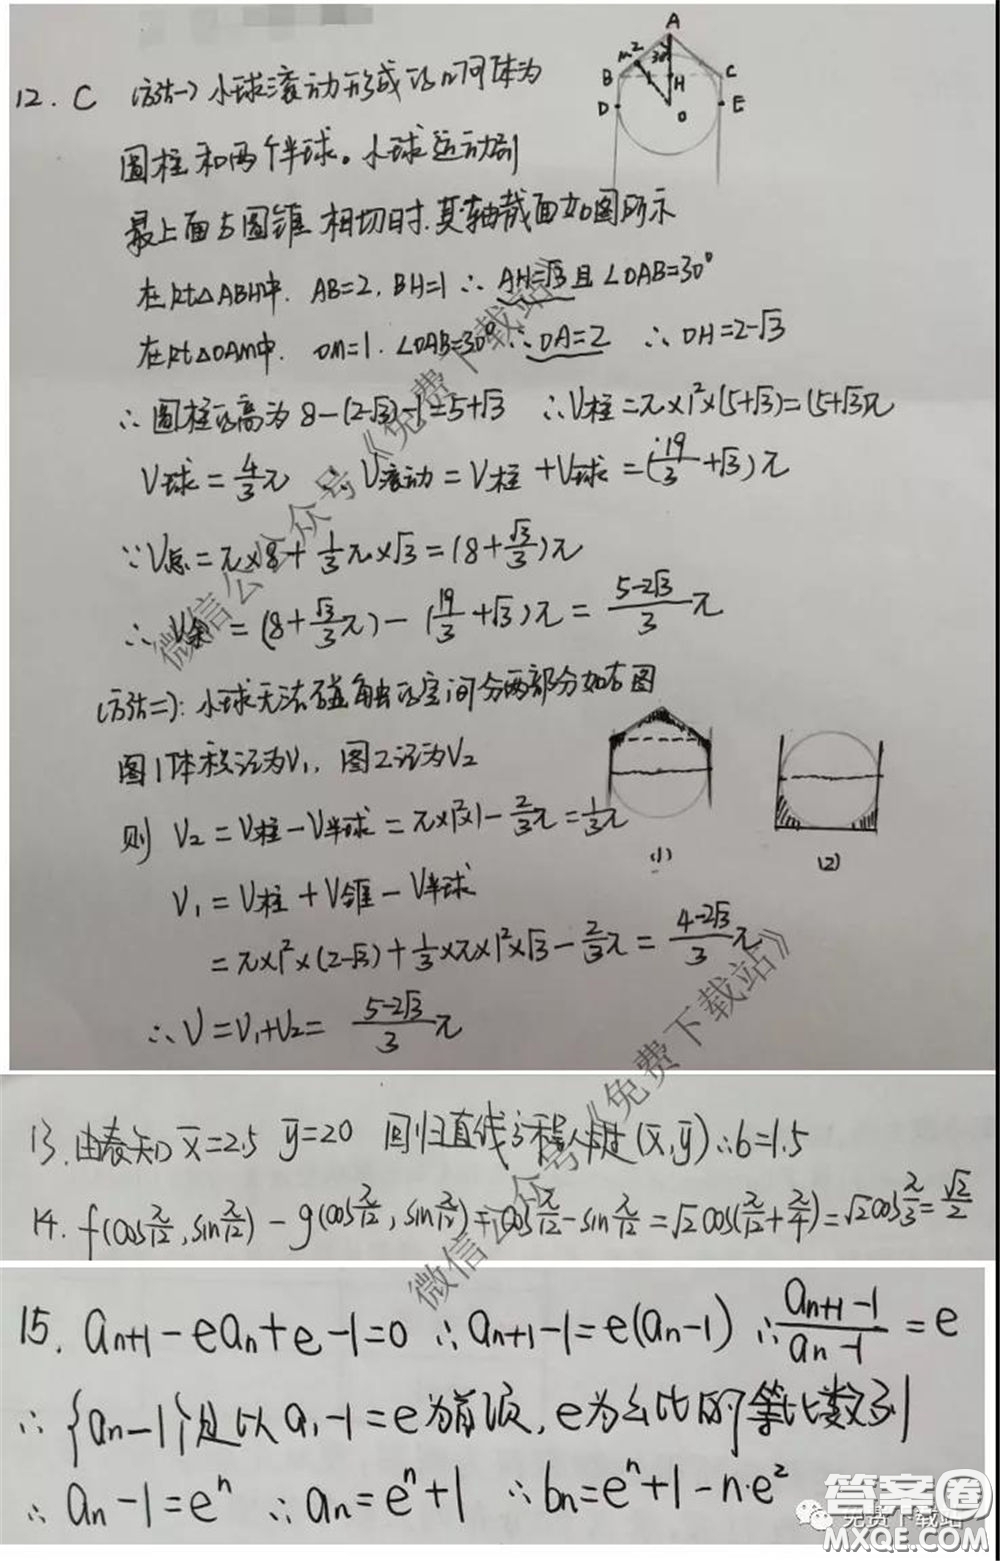 A
M 2 30°
B H C
D O E
12. C (方法一) 小球滚动形成的几何体为
圆柱和两个半球。小球运动到
最上面与圆锥相切时.其轴截面如图所示
在Rt△ABH中. AB=2, BH=1 ∴ AH=√3 且 ∠OAB=30°
在Rt△OAM中. OM=1. ∠OAB=30° ∴ OA=2 ∴ OH=2-√3
∴ 圆柱的高为 8-(2-√3)-1=5+√3 ∴ V柱=π×1²×(5+√3)=(5+√3)π
V球=4/3π ∴ V滚动=V柱+V球=(19/3+√3)π
∵ V总=π×8+1/3π×√3=(8+√3/3)π
∴ V余=(8+√3/3π)-(19/3+√3)π=(5-2√3)/3π
(方法二): 小球无法碰触的空间分两部分如右图
图1体积记为V₁, 图2记为V₂
则 V₂=V柱-V半球=π×1²×1-2/3π=1/3π
(1) (2)
V₁=V柱+V锥-V半球
=π×1²×(2-√3)+1/3×π×1²×√3-2/3π=(4-2√3)/3π
∴ V=V₁+V₂=(5-2√3)/3π
13. 由表知 x̄=2.5 ȳ=20 回归直线方程 (x̄,ȳ) ∴ b=1.5
14. f(cosπ/12, sinπ/12)-g(cosπ/12, sinπ/12)=cosπ/12-sinπ/12=√2cos(π/12+π/4)=√2cosπ/3=√2/2
15. aₙ₊₁-eaₙ+e-1=0 ∴ aₙ₊₁-1=e(aₙ-1) ∴ (aₙ₊₁-1)/(aₙ-1)=e
∴ {aₙ-1}是以a₁-1=e为首项, e为公比的等比数列
∴ aₙ-1=eⁿ ∴ aₙ=eⁿ+1 ∴ bₙ=eⁿ+1-n·e²
微信公众号《免费下载站》
微信公众号《免费下载站》
答案圈
免费下载站
MXQE.COM